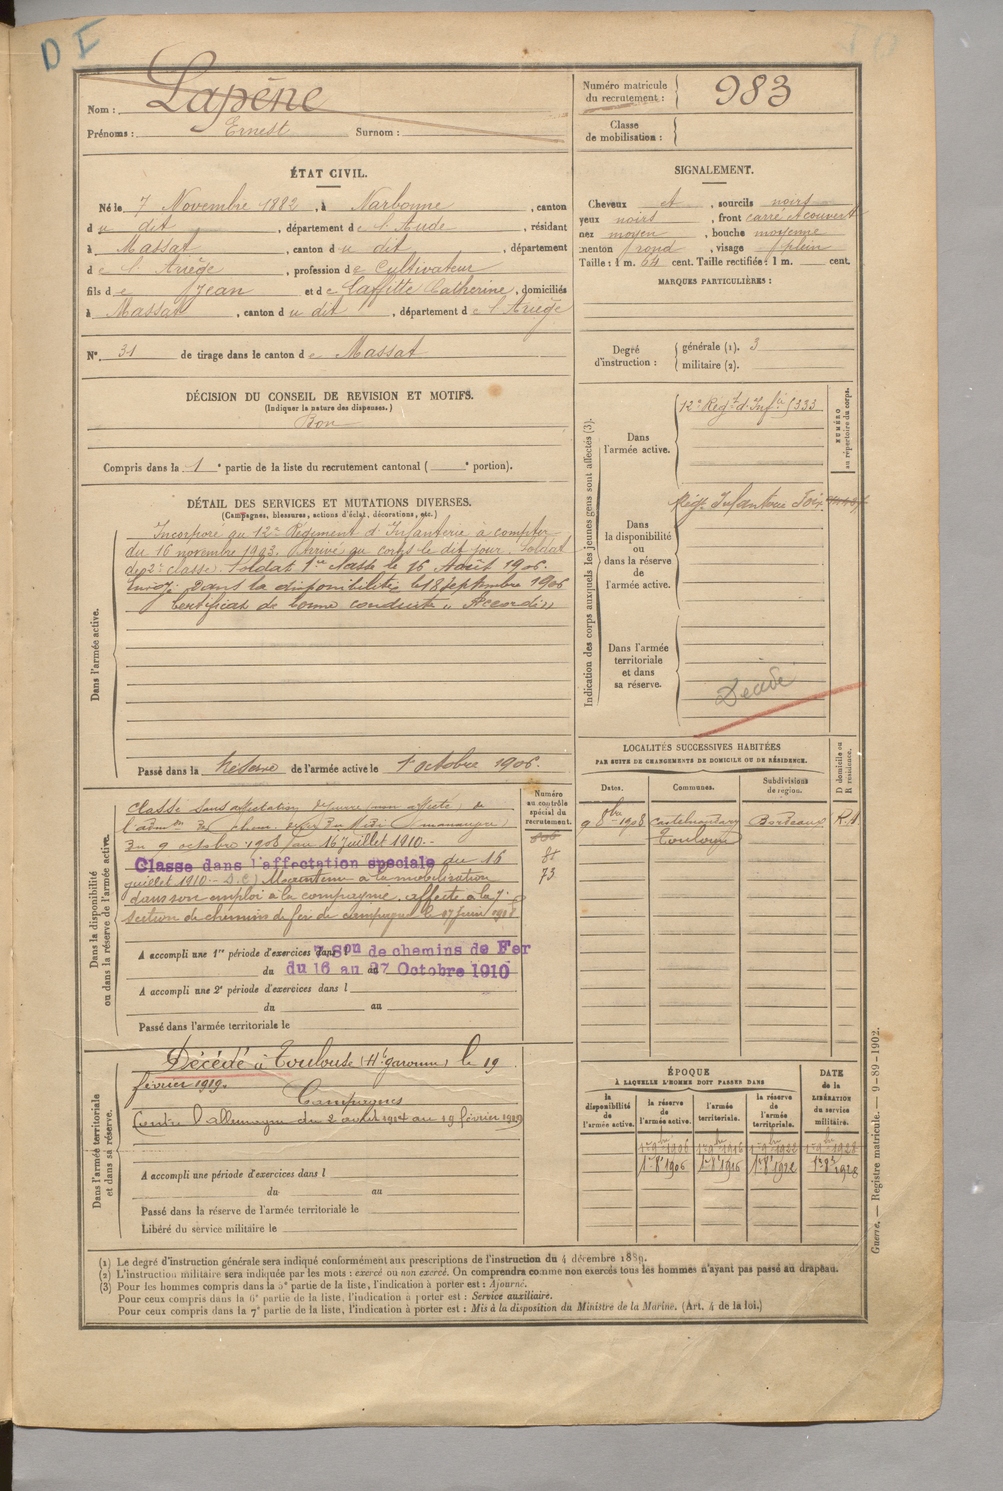 DI
Nom : Lapène
Prénoms : Ernest Surnom :
Numéro matricule du recrutement : 983
Classe de mobilisation :
ÉTAT CIVIL.
Né le 7 Novembre 1882, à Narbonne, canton
du dit, département de l'Aude, résidant
à Massat, canton du dit, département
de l'Ariège, profession de Cultivateur
fils de Jean et de Laffitte Catherine, domiciliés
à Massat, canton du dit, département de l'Ariège
N° 31 de tirage dans le canton de Massat
SIGNALEMENT.
Cheveux et, sourcils noirs
yeux noirs, front carré et couvert
nez moyen, bouche moyenne
menton rond, visage plein
Taille : 1 m. 64 cent. Taille rectifiée : 1 m. cent.
MARQUES PARTICULIÈRES :
Degré d'instruction : générale (1). 3
militaire (2).
DÉCISION DU CONSEIL DE REVISION ET MOTIFS.
(Indiquer la nature des dispenses.)
Bon
Compris dans la 1e partie de la liste du recrutement cantonal ( e portion).
DÉTAIL DES SERVICES ET MUTATIONS DIVERSES.
(Campagnes, blessures, actions d'éclat, décorations, etc.)
Dans l'armée active.
Incorporé au 12e Régiment d'Infanterie à compter
du 16 novembre 1903. Arrivé au corps le dit jour. Soldat
de 2e classe. Soldat 1re classe le 16 Août 1906.
Envoyé dans la disponibilité le 18 Septembre 1906
Certificat de bonne conduite "Accordé"
Passé dans la Réserve de l'armée active le 1 octobre 1906.
Indication des corps auxquels les jeunes gens sont affectés (3).
NUMÉRO au répertoire du corps.
Dans l'armée active.
12e Regt d'Infie 5333
Dans la disponibilité ou dans la réserve de l'armée active.
Régt Infanterie Foix
Dans l'armée territoriale et dans sa réserve.
Décédé
LOCALITÉS SUCCESSIVES HABITÉES
PAR SUITE DE CHANGEMENTS DE DOMICILE OU DE RÉSIDENCE.
Dates. Communes. Subdivisions de région. D domicile ou R résidence.
9 8bre 1908 Castelnaudary Bordeaux R.
Toulouse
Dans la disponibilité ou dans la réserve de l'armée active.
Numéro au contrôle spécial du recrutement.
Classé sans affectation
du 9 octobre 1908 au 16 juillet 1910.
Classé dans l'affectation spéciale du 16
juillet 1910. Maintenu à la mobilisation
dans son emploi à la compagnie, affecté à la 7e
section de chemins de fer de campagne le 17 Juin
73
A accompli une 1re période d'exercices dans l 7 Son de chemins de Fer
du 16 au 27 Octobre 1910
A accompli une 2e période d'exercices dans l
du au
Passé dans l'armée territoriale le
Dans l'armée territoriale et dans sa réserve.
Décédé à Toulouse (Hte garonne) le 19
février 1919.
Campagnes
Contre l'allemagne du 2 août 1914 au 19 février 1919
A accompli une période d'exercices dans l
du au
Passé dans la réserve de l'armée territoriale le
Libéré du service militaire le
ÉPOQUE
À LAQUELLE L'HOMME DOIT PASSER DANS
DATE de la LIBÉRATION du service militaire.
la disponibilité de l'armée active. la réserve de l'armée active. l'armée territoriale. la réserve de l'armée territoriale.
1er 9bre 1906 1er 9bre 1916 1er 9bre 1922 1er 9bre 1928
1er 8bre 1906 1er 8bre 1916 1er 8bre 1922 1er 8bre 1928
(1) Le degré d'instruction générale sera indiqué conformément aux prescriptions de l'instruction du 4 décembre 1889.
(2) L'instruction militaire sera indiquée par les mots : exercé ou non exercé. On comprendra comme non exercés tous les hommes n'ayant pas passé au drapeau.
(3) Pour les hommes compris dans la 5e partie de la liste, l'indication à porter est : Ajourné.
Pour ceux compris dans la 6e partie de la liste, l'indication à porter est : Service auxiliaire.
Pour ceux compris dans la 7e partie de la liste, l'indication à porter est : Mis à la disposition du Ministre de la Marine. (Art. 4 de la loi.)
Guerre. — Registre matricule. — 9-89-1902.